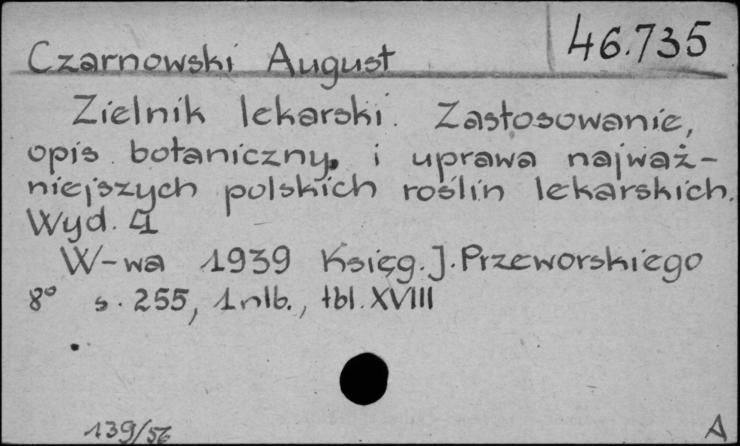 46.735
Czarnowski August
Zielnik lekarski. Zastosowanie,
opis botaniczny, i uprawa najważ-
niejszych polskich roślin lekarskich.
Wyd. 4
W-wa 1939 Księg. J. Przeworskiego
8° s. 255, 1 nlb., tbl. XVIII
139/56
A